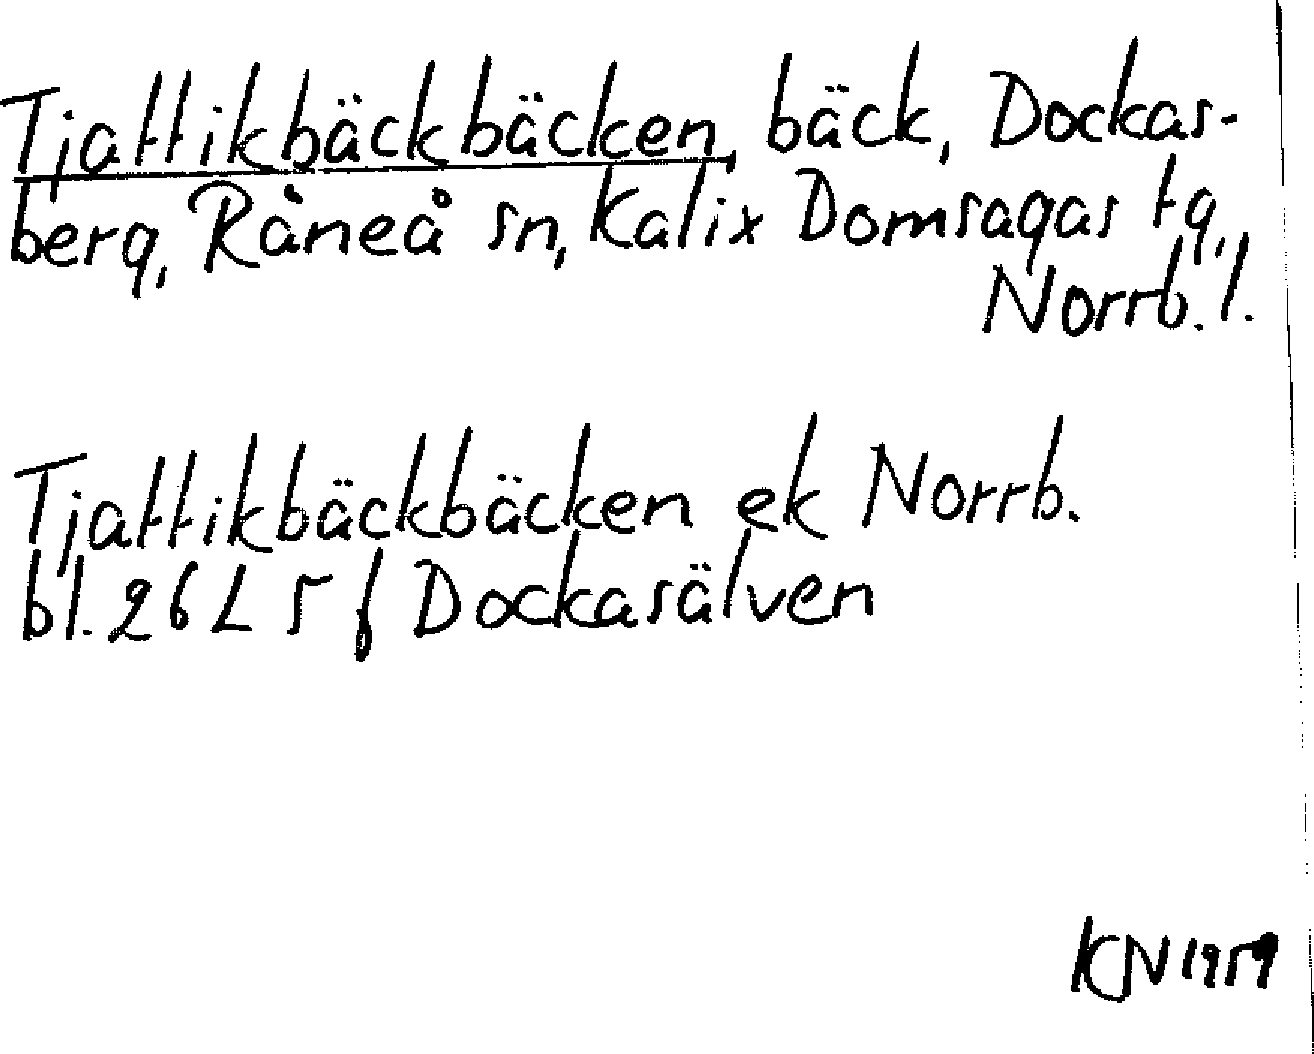 Tjattikbäckbäcken, bäck, Dockas-
berg, Råneå sn, Kalix Domsagas tg,
Norrb. l.
Tjattikbäckbäcken ek Norrb.
bl. 26 L 5 f Dockasälven
KJN 1959